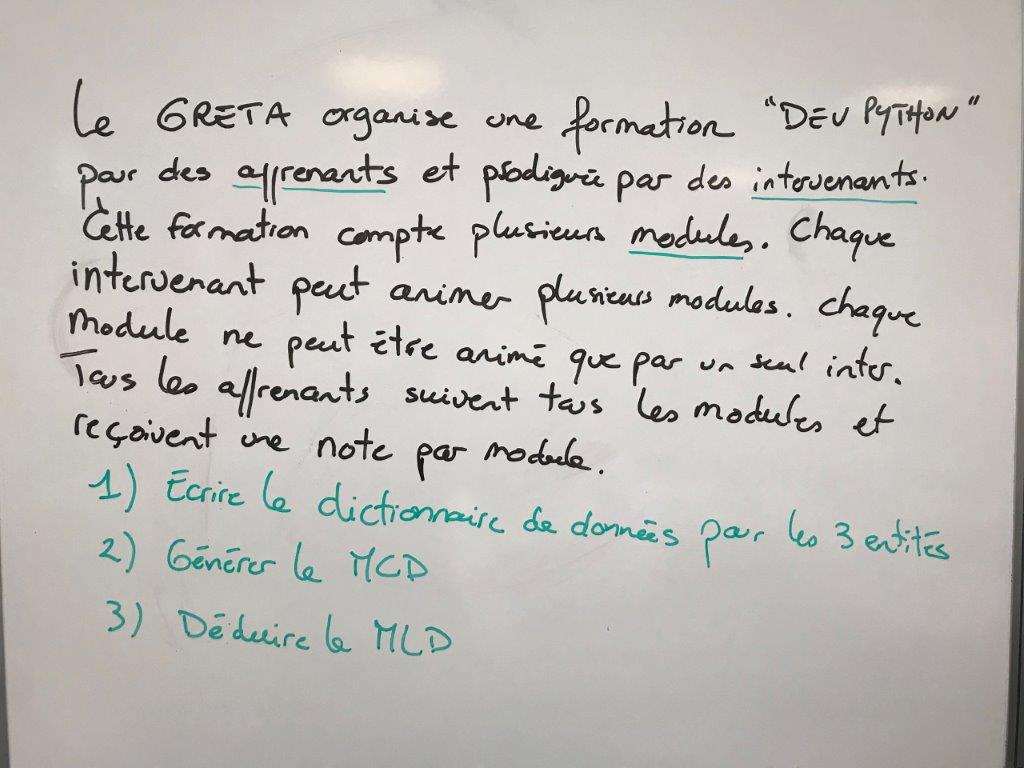 Le GRETA organise une formation "DEV PYTHON"
pour des apprenants et prodiguée par des intervenants.
Cette formation compte plusieurs modules. Chaque
intervenant peut animer plusieurs modules. Chaque
module ne peut être animé que par un seul inter.
Tous les apprenants suivent tous les modules et
reçoivent une note par module.
1) Écrire le dictionnaire de données pour les 3 entités
2) Générer le MCD
3) Déduire le MLD